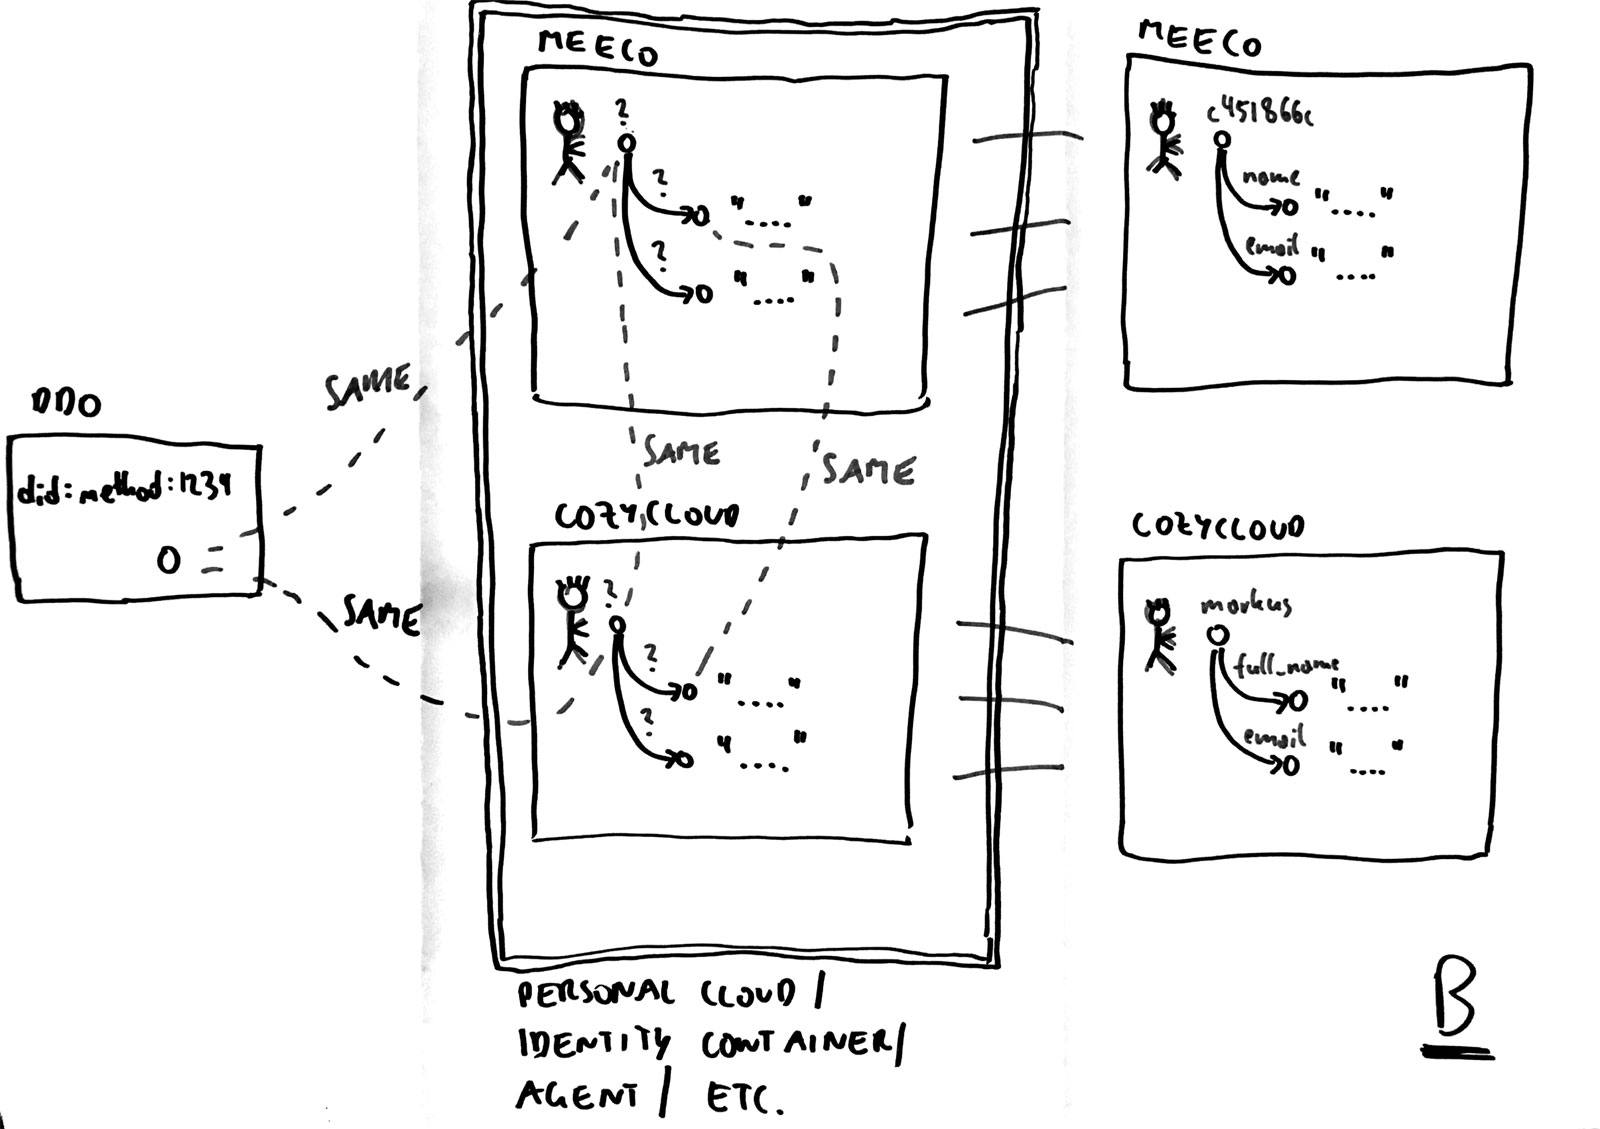 DDO
did:method:1234
O =
SAME
SAME
MEECO
?
?
"...."
?
"...."
SAME
SAME
COZYCLOUD
?
?
"...."
?
"...."
PERSONAL CLOUD /
IDENTITY CONTAINER/
AGENT / ETC.
MEECO
c451866c
name
"...."
email "...."
COZYCLOUD
markus
full_name
"...."
email "...."
B